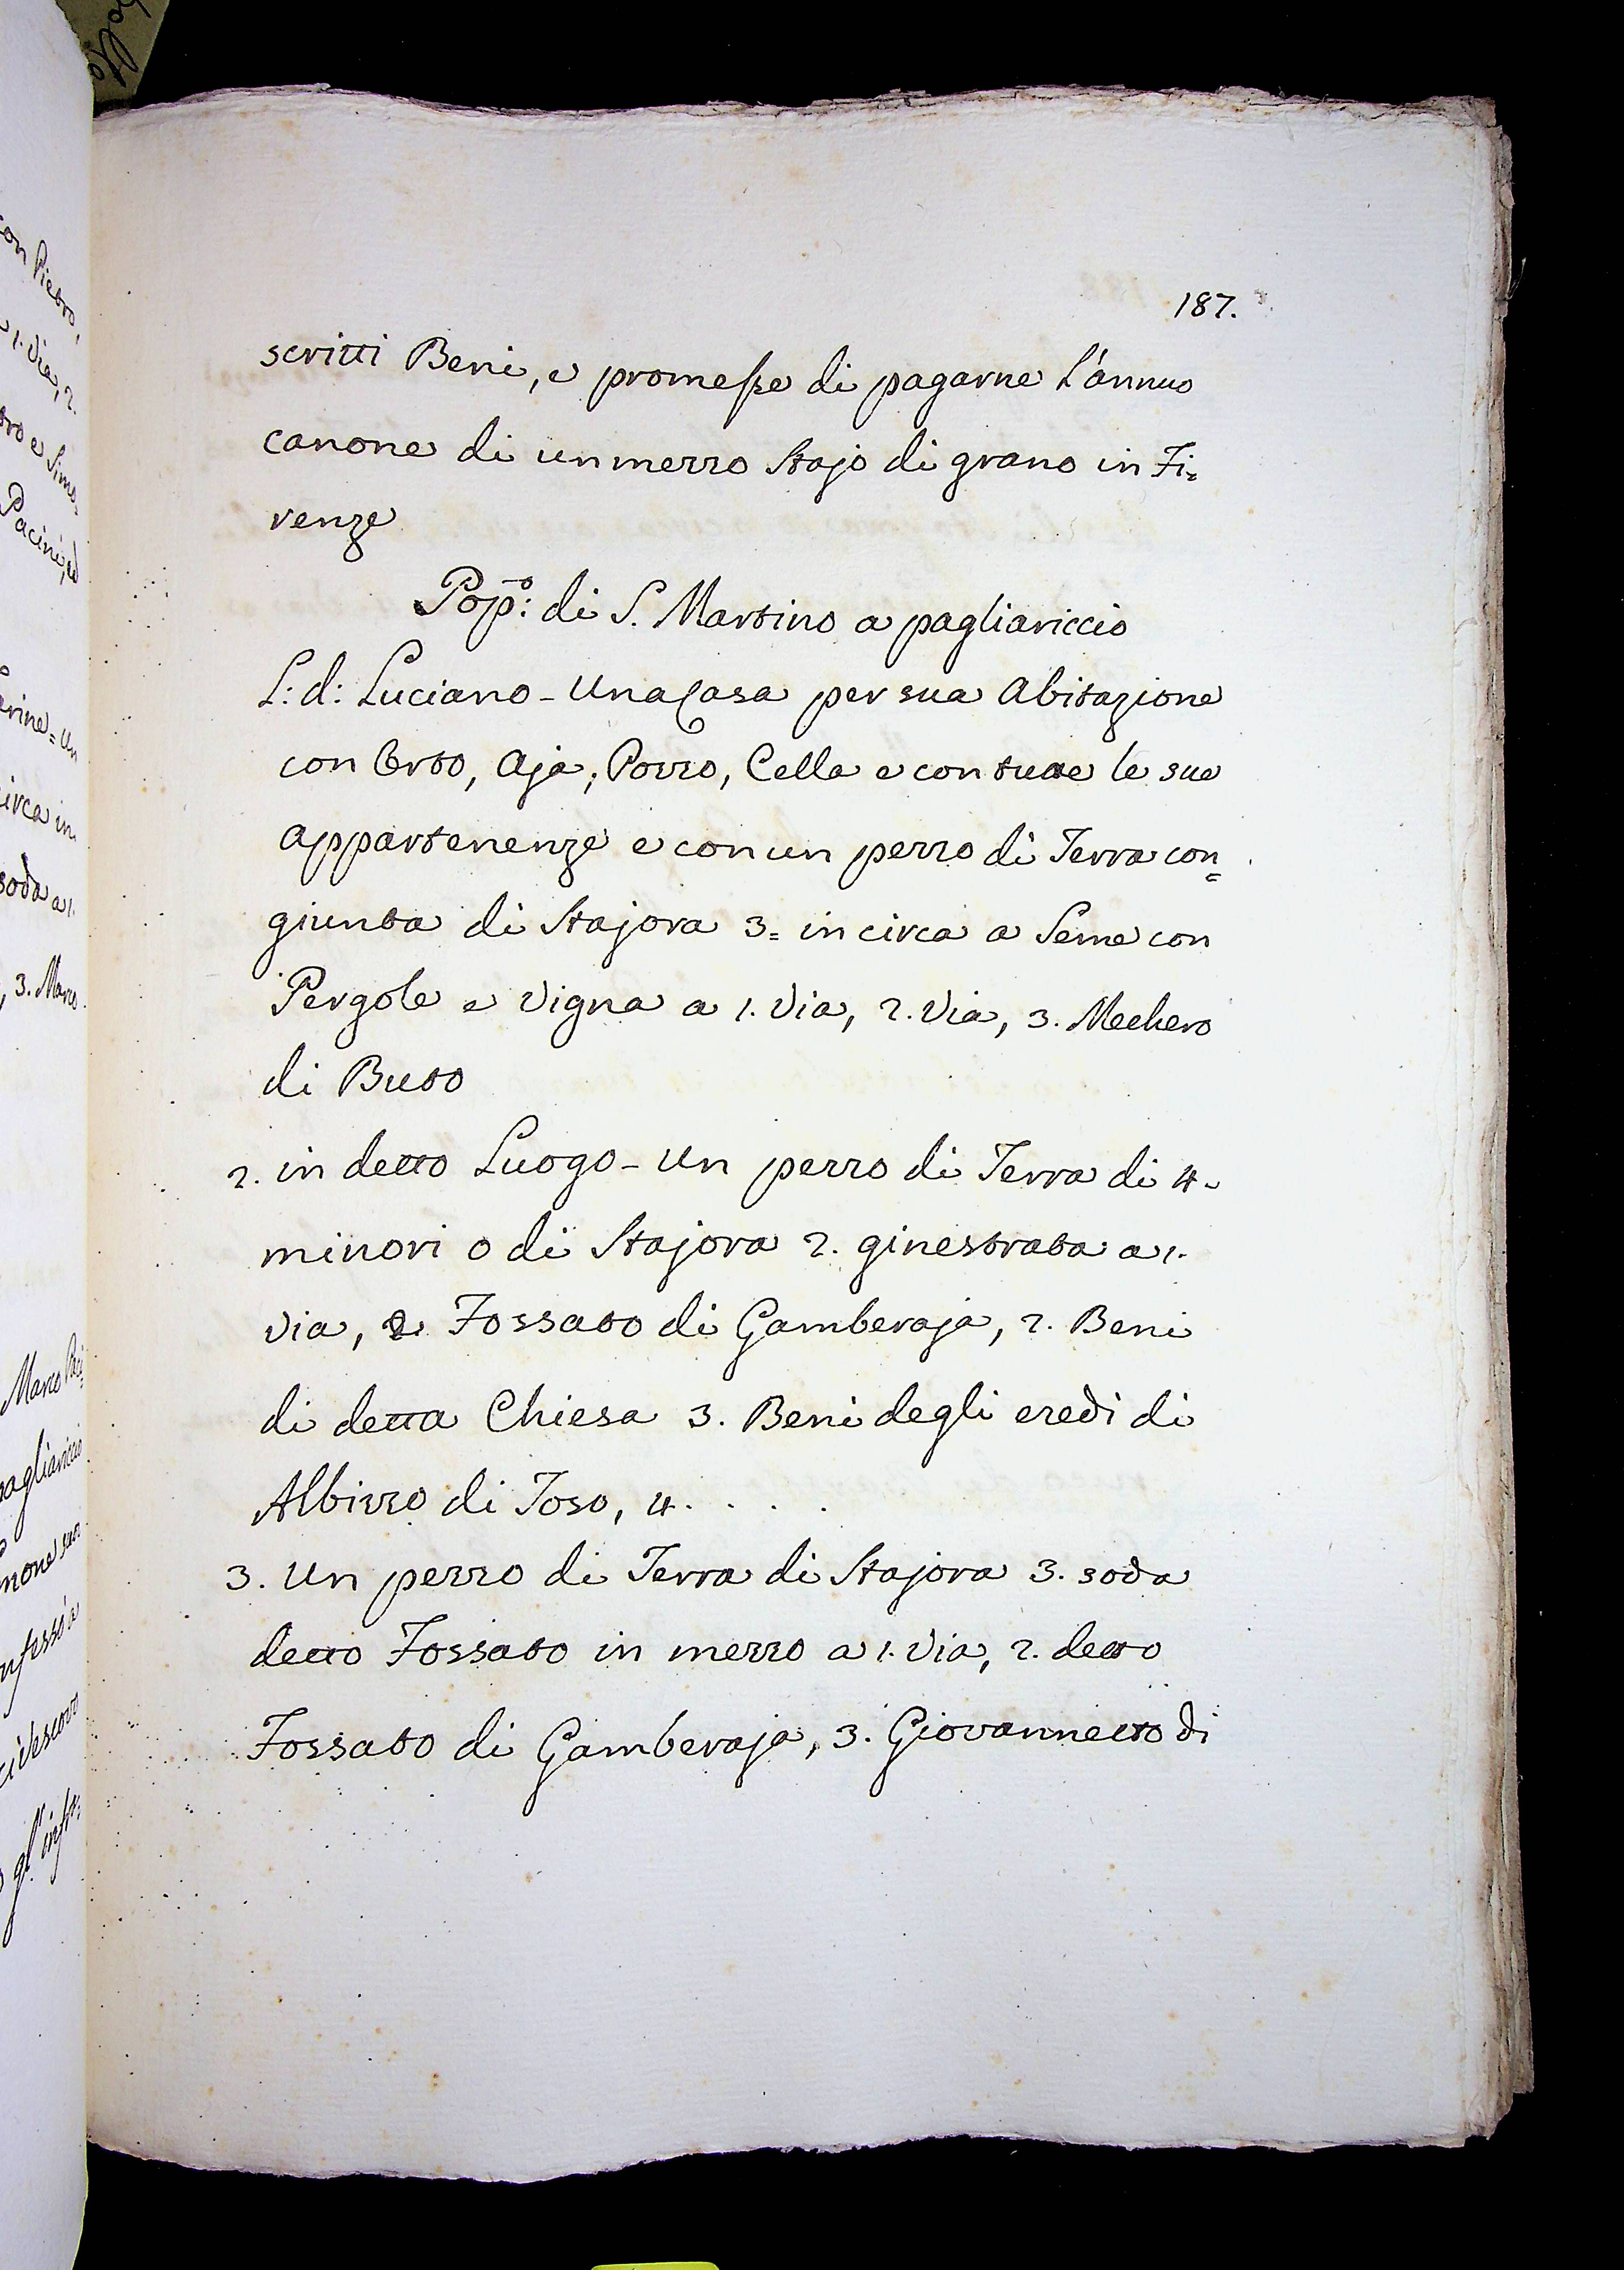 187.
scritti Beni, e promesse di pagarne l'annuo
canone di un mezzo Stajo di grano in Fi=
renze
Pop.o: di S. Martino a pagliariccio
L: d: Luciano - Una Casa per sua Abitazione
con Orto, Aja, Pozzo, Cella e con tutte le sue
appartenenze e con un pezzo di Terra con=
giunta di Stajora 3= in circa a Seme con
Pergole e Vigna a 1. Via, 2. Via, 3. Mechero
di Buto
2. in detto Luogo - Un pezzo di Terra di 4.
minori o di Stajora 2. ginestrata a 1.
via, 2. Fossato di Gamberaja, 2. Beni
di detta Chiesa 3. Beni degli eredi di
Albizzo di Toso, 4. . . .
3. Un pezzo di Terra di Stajora 3. soda
detto Fossato in mezzo a 1. Via, 2. detto
Fossato di Gamberaja, 3. Giovannetto di